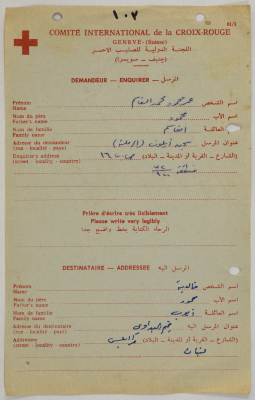 ١٠٧
61/5
COMITÉ INTERNATIONAL de la CROIX-ROUGE
GENÈVE (Suisse)
اللجنة الدولية للصليب الاحمر
(جنيف - سويسرا)
DEMANDEUR — ENQUIRER — المرسل
Prénom اسم الشخص
Name
Nom du père اسم الأب محمود
Father's name
Nom de famille العائلة القاسم
Family name
Adresse du demandeur عنوان المرسل
(rue - localité - pays)
Enquirer's address (الشارع - القرية او المدينة - البلاد)
(street - locality - country)
Prière d'écrire très lisiblement
Please write very legibly
الرجاء الكتابة بخط واضح جدا
DESTINATAIRE — ADDRESSEE — المرسل اليه
Prénom اسم الشخص
Name
Nom du père اسم الأب محمود
Father's name
Nom de famille العائلة ايوب
Family name
Adresse du destinataire عنوان المرسل اليه
(rue - localité - pays)
Addressee (الشارع - القرية او المدينة - البلاد) طرابلس
(street - locality - country) لبنان